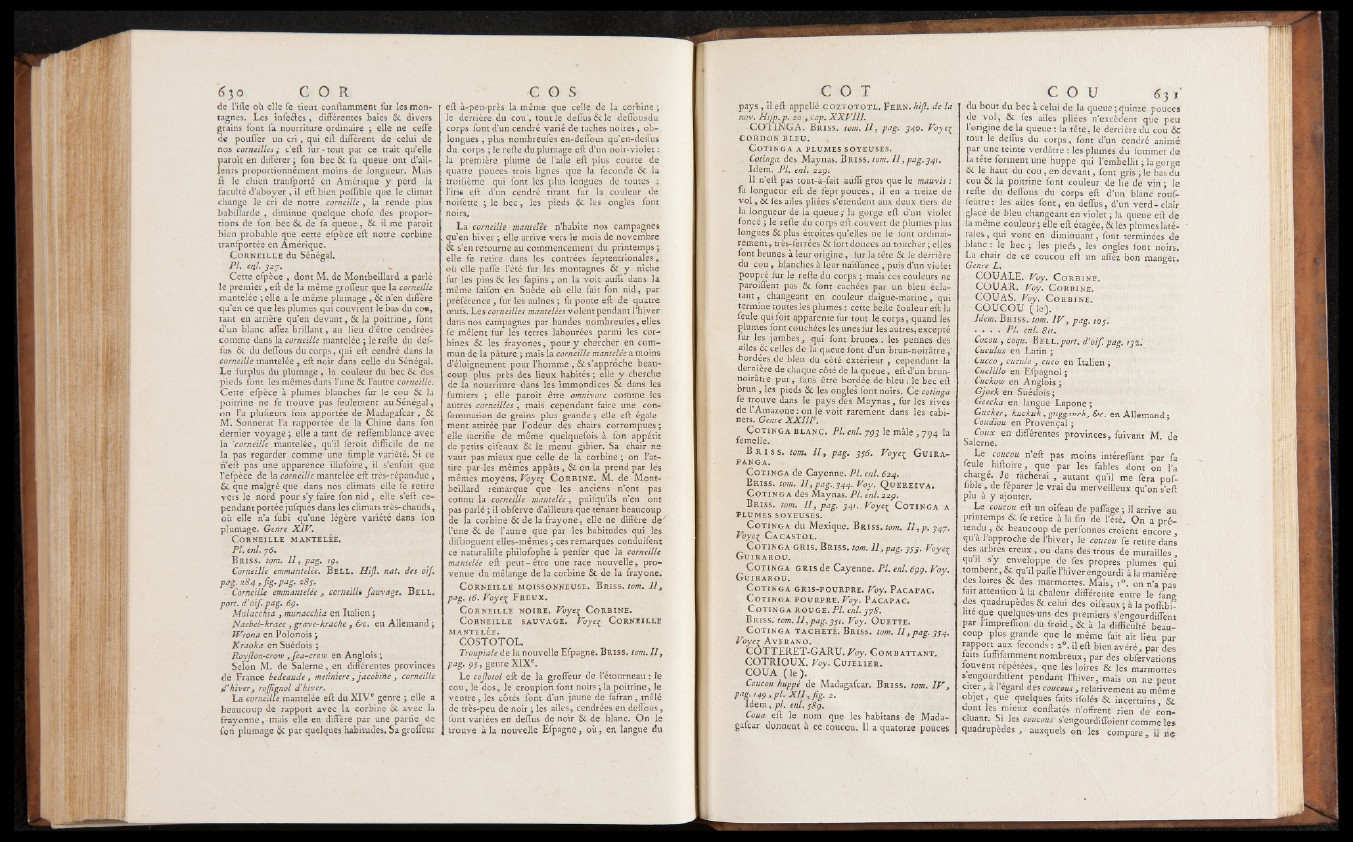 630 C O R
de l'iſle où elle ſe tient conſtamment ſur les mon-
tagnes. Les inſectes, différentes baies & divers
grains ſont ſa nourriture ordinaire ; elle ne ceſſe
de pouſſer un cri, qui eſt différent de celui de
nos corneilles ; c'eſt ſur-tout par ce trait qu'elle
paroît en différer ; ſon bec & ſa queue ont d'ail-
leurs proportionnément moins de longueur. Mais
ſi le chien tranſporté en Amérique y perd la
faculté d'aboyer, il eſt bien poſſible que le climat
change le cri de notre corneille, la rende plus
babillarde, diminue quelque choſe des propor-
tions de ſon bec & de ſa queue, & il me paroît
bien probable que cette eſpèce eſt notre corbine
tranſportée en Amérique.
CORNEILLE du Sénégal.
Pl. enl. 327.
Cette eſpèce, dont M. de Montbeillard a parlé
le premier, eſt de la même groſſeur que la corneille
mantelée ; elle a le même plumage, & n'en diffère
qu'en ce que les plumes qui couvrent le bas du cou,
tant en arrière qu'en devant, & la poitrine, ſont
d'un blanc aſſez brillant, au lieu d'être cendrées
comme dans la corneille mantelée ; le reſte du deſ-
ſus & du deſſous du corps, qui eſt cendré dans la
corneille mantelée, eſt noir dans celle du Sénégal.
Le ſurplus du plumage, la couleur du bec & des
pieds ſont les mêmes dans l'une & l'autre corneille.
Cette eſpèce à plumes blanches ſur le cou & la
poitrine ne ſe trouve pas ſeulement au Sénégal,
on l'a pluſieurs fois apportée de Madagaſcar, &
M. Sonnerat l'a rapportée de la Chine dans ſon
dernier voyage ; elle a tant de reſſemblance avec
la corneille mantelée, qu'il ſeroit difficile de ne
la pas regarder comme une ſimple variété. Si ce
n'eſt pas une apparence illuſoire, il s'enſuit que
l'eſpèce de la corneille mantelée eſt très-répandue,
& que malgré que dans nos climats elle ſe retire
vers le nord pour s'y faire ſon nid, elle s'eſt ce-
pendant portée juſques dans les climats très-chauds,
où elle n'a ſubi qu'une légère variété dans ſon
plumage. Genre XIV.
CORNEILLE MANTELÉE.
Pl. enl. 76.
BRISS. tom. II, pag. 19.
Corneille emmantelée. BELL. Hiſt. nat. des oiſ.
pag. 284, fig. pag. 285.
Corneille emmantelée, corneille ſauvage. BELL.
port. d'oiſ. pag. 69.
Mulacchia, munacchia en Italien ;
Naebel-kraee, grave-krache, &c. en Allemand ;
Wrona en Polonois ;
Kraoka en Suédois ;
Royſton-crow, ſea-crow en Anglois ;
Selon M. de Salerne, en différentes provinces
de France bedeaude, meûniere, jacobine, corneille
d'hiver, roſſignol d'hiver.
La corneille mantelée eſt du XIVᵉ genre ; elle a
beaucoup de rapport avec la corbine & avec la
frayonne, mais elle en diffère par une partie de
ſon plumage & par quelques habitudes. Sa groſſeur
C O S
eſt à-peu-près la même que celle de la corbine ;
le derrière du cou, tout le deſſus & le deſſous du
corps ſont d'un cendré varié de taches noires, ob-
longues, plus nombreuſes en-deſſous qu'en-deſſus
du corps ; le reſte du plumage eſt d'un noir-violet :
la première plume de l'aile eſt plus courte de
quatre pouces trois lignes que la ſeconde & la
troiſième qui ſont les plus longues de toutes :
l'iris eſt d'un cendré tirant ſur la couleur de
noiſette ; le bec, les pieds & les ongles ſont
noirs.
La corneille mantelée n'habite nos campagnes
qu'en hiver ; elle arrive vers le mois de novembre
& s'en retourne au commencement du printemps ;
elle ſe retire dans les contrées ſeptentrionales,
où elle paſſe l'été ſur les montagnes & y niche
ſur les pins & les ſapins ; on la voit auſſi dans la
même ſaiſon en Suède où elle fait ſon nid, par
préférence, ſur les aulnes ; ſa ponte eſt de quatre
œufs. Les corneilles mantelées volent pendant l'hiver
dans nos campagnes par bandes nombreuſes, elles
ſe mêlent ſur les terres labourées parmi les cor-
bines & les frayones, pour y chercher en com-
mun de la pâture ; mais la corneille mantelée a moins
d'éloignement pour l'homme, & s'approche beau-
coup plus près des lieux habités ; elle y cherche
de la nourriture dans les immondices & dans les
fumiers ; elle paroît être omnivore comme les
autres corneilles, mais cependant faire une con-
ſommation de grains plus grande ; elle eſt égale-
ment attirée par l'odeur des chairs corrompues ;
elle ſacrifie de même quelquefois à ſon appétit
de petits oiſeaux & le menu gibier. Sa chair ne
vaut pas mieux que celle de la corbine ; on l'at-
tire par les mêmes appâts, & on la prend par les
mêmes moyens. Voyez CORBINE. M. de Mont-
beillard remarque que les anciens n'ont pas
connu la corneille mantelée, puiſqu'ils n'en ont
pas parlé ; il obſerve d'ailleurs que tenant beaucoup
de la corbine & de la frayone, elle ne diffère de
l'une & de l'autre que par les habitudes qui les
diſtinguent elles-mêmes ; ces remarques conduiſent
ce naturaliſte philoſophe à penſer que la corneille
mantelée eſt peut-être une race nouvelle, pro-
venue du mélange de la corbine & de la frayone.
CORNEILLE MOISSONNEUSE. BRISS. tom. II,
pag. 16. Voyez FREUX.
CORNEILLE NOIRE. Voyez CORBINE.
CORNEILLE SAUVAGE. Voyez CORNEILLE
MANTELÉE.
COSTOTOL.
Troupiale de la nouvelle Eſpagne. BRISS. tom. II,
pag. 95, genre XIXᵉ.
Le coſtotol eſt de la groſſeur de l'étourneau : le
cou, le dos, le croupion ſont noirs ; la poitrine, le
ventre, les côtés ſont d'un jaune de ſafran, mêlé
de très-peu de noir ; les ailes, cendrées en deſſous,
ſont variées en deſſus de noir & de blanc. On le
trouve à la nouvelle Eſpagne, où, en langue du
C O T
pays, il eſt appellé COZTOTOTL. FERN. hiſt. de la
nov. Hiſp. p. 20, cap. XXVIII.
COTINGA. BRISS. tom. II, pag. 340. Voyez
CORDON BLEU.
COTINGA A PLUMES SOYEUSES.
Cotinga des Maynas. BRISS. tom. II, pag. 341.
Idem. Pl. enl. 229.
Il n'eſt pas tout-à-fait auſſi gros que le mauvis :
ſa longueur eſt de ſept pouces, il en a treize de
vol, & ſes ailes pliées s'étendent aux deux tiers de
la longueur de la queue ; la gorge eſt d'un violet
foncé ; le reſte du corps eſt couvert de plumes plus
longues & plus étroites qu'elles ne le ſont ordinai-
rement, très-ſerrées & fort douces au toucher ; elles
ſont brunes à leur origine, ſur la tête & le derrière
du cou, blanches à leur naiſſance, puis d'un violet
poupré ſur le reſte du corps ; mais ces couleurs ne
paroiſſent pas & ſont cachées par un bleu écla-
tant, changeant en couleur d'aigue-marine, qui
termine toutes les plumes : cette belle couleur eſt la
ſeule qui ſoit apparente ſur tout le corps, quand les
plumes ſont couchées les unes ſur les autres, excepté
ſur les jambes, qui ſont brunes : les pennes des
ailes & celles de la queue ſont d'un brun-noirâtre,
bordées de bleu du côté extérieur, cependant la
dernière de chaque côté de la queue, eſt d'un brun-
noirâtre pur, ſans être bordée de bleu : le bec eſt
brun, les pieds & les ongles ſont noirs. Ce cotinga
ſe trouve dans le pays des Maynas, ſur les rives
de l'Amazone : on le voit rarement dans les cabi-
nets. Genre XXIIIᵉ.
COTINGA BLANC. Pl. enl. 793 le mâle, 794 la
femelle.
BRISS. tom. II, pag. 356. Voyez GUIRA-
PANGA.
COTINGA de Cayenne. Pl. enl. 624.
BRISS. tom. II, pag. 344. Voy. QUEREIVA.
COTINGA des Maynas. Pl. enl. 229.
BRISS. tom. II, pag. 341. Voyez COTINGA A
PLUMES SOYEUSES.
COTINGA du Mexique. BRISS. tom. II, p. 347.
Voyez CACASTOL.
COTINGA GRIS. BRISS. tom. II, pag. 353. Voyez
GUIRAROU.
COTINGA GRIS de Cayenne. Pl. enl. 699. Voy.
GUIRAROU.
COTINGA GRIS-POURPRE. Voy. PACAPAC.
COTINGA POURPRE. Voy. PACAPAC.
COTINGA ROUGE. Pl. enl. 378.
BRISS. tom. II, pag. 351. Voy. OUETTE.
COTINGA TACHETÉ. BRISS. tom. II, pag. 354.
Voyez AVERANO.
COTTERET-GARU. Voy. COMBATTANT.
COTRIOUX. Voy. CUJELIER.
COUA (le).
Coucou huppé de Madagaſcar. BRISS. tom. IV,
pag. 149, pl. XII, fig. 2.
Idem, pl. enl. 589.
Coua eſt le nom que les habitans de Mada-
gaſcar donnent à ce coucou. Il a quatorze pouces
C O U 631
du bout du bec à celui de la queue ; quinze pouces
de vol, & ſes ailes pliées n'excèdent que peu
l'origine de la queue : la tête, le derrière du cou &
tout le deſſus du corps, ſont d'un cendré animé
par une teinte verdâtre : les plumes du ſommet de
la tête forment une huppe qui l'embellit ; la gorge
& le haut du cou, en devant, ſont gris ; le bas du
cou & la poitrine ſont couleur de lie de vin ; le
reſte du deſſous du corps eſt d'un blanc rouſ-
ſeâtre : les ailes ſont, en deſſus, d'un verd-clair
glacé de bleu changeant en violet ; la queue eſt de
la même couleur ; elle eſt étagée, & les plumes laté-
rales, qui vont en diminuant, ſont terminées de
blanc : le bec ; les pieds, les ongles ſont noirs.
La chair de ce coucou eſt un aſſez bon manger.
Genre L.
COUALE. Voy. CORBINE.
COUAR. Voy. CORBINE.
COUAS. Voy. CORBINE.
COUCOU (le).
Idem. BRISS. tom. IV, pag. 105.
. . . . Pl. enl. 811.
Cocou, coqu. BELL. port. d'oiſ. pag. 132.
Cuculus en Latin ;
Cucco, cuculo, cuco en Italien ;
Cuclillo en Eſpagnol ;
Cuckow en Anglois ;
Gjoek en Suédois ;
Geecka en langue Lapone ;
Gucker, kuckuk, guggauch, &c. en Allemand ;
Coudiou en Provençal ;
Coux en différentes provinces, ſuivant M. de
Salerne.
Le coucou n'eſt pas moins intéreſſant par ſa
ſeule hiſtoire, que par les fables dont on l'a
chargé. Je tâcherai, autant qu'il me ſera poſ-
ſible, de ſéparer le vrai du merveilleux qu'on s'eſt
plu à y ajouter.
Le coucou eſt un oiſeau de paſſage ; il arrive au
printemps & ſe retire à la fin de l'été. On a pré-
tendu, & beaucoup de perſonnes croient encore,
qu'à l'approche de l'hiver, le coucou ſe retire dans
des arbres creux, ou dans des trous de murailles,
qu'il s'y enveloppe de ſes propres plumes qui
tombent, & qu'il paſſe l'hiver engourdi à la manière
des loires & des marmottes. Mais, 1°. on n'a pas
fait attention à la chaleur différente entre le ſang
des quadrupèdes & celui des oiſeaux ; à la poſſibi-
lité que quelques-uns des premiers s'engourdiſſent
par l'impreſſion du froid, & à la difficulté beau-
coup plus grande que le même fait ait lieu par
rapport aux ſeconds : 2°. il eſt bien avéré, par des
faits ſuffiſamment nombreux, par des obſervations
ſouvent répétées, que les loires & les marmottes
s'engourdiſſent pendant l'hiver, mais on ne peut
citer, à l'égard des coucous, relativement au même
objet, que quelques faits iſolés & incertains, &
dont les mieux conſtatés n'offrent rien de con-
cluant. Si les coucous s'engourdiſſoient comme les
quadrupèdes, auxquels on les compare, il ne